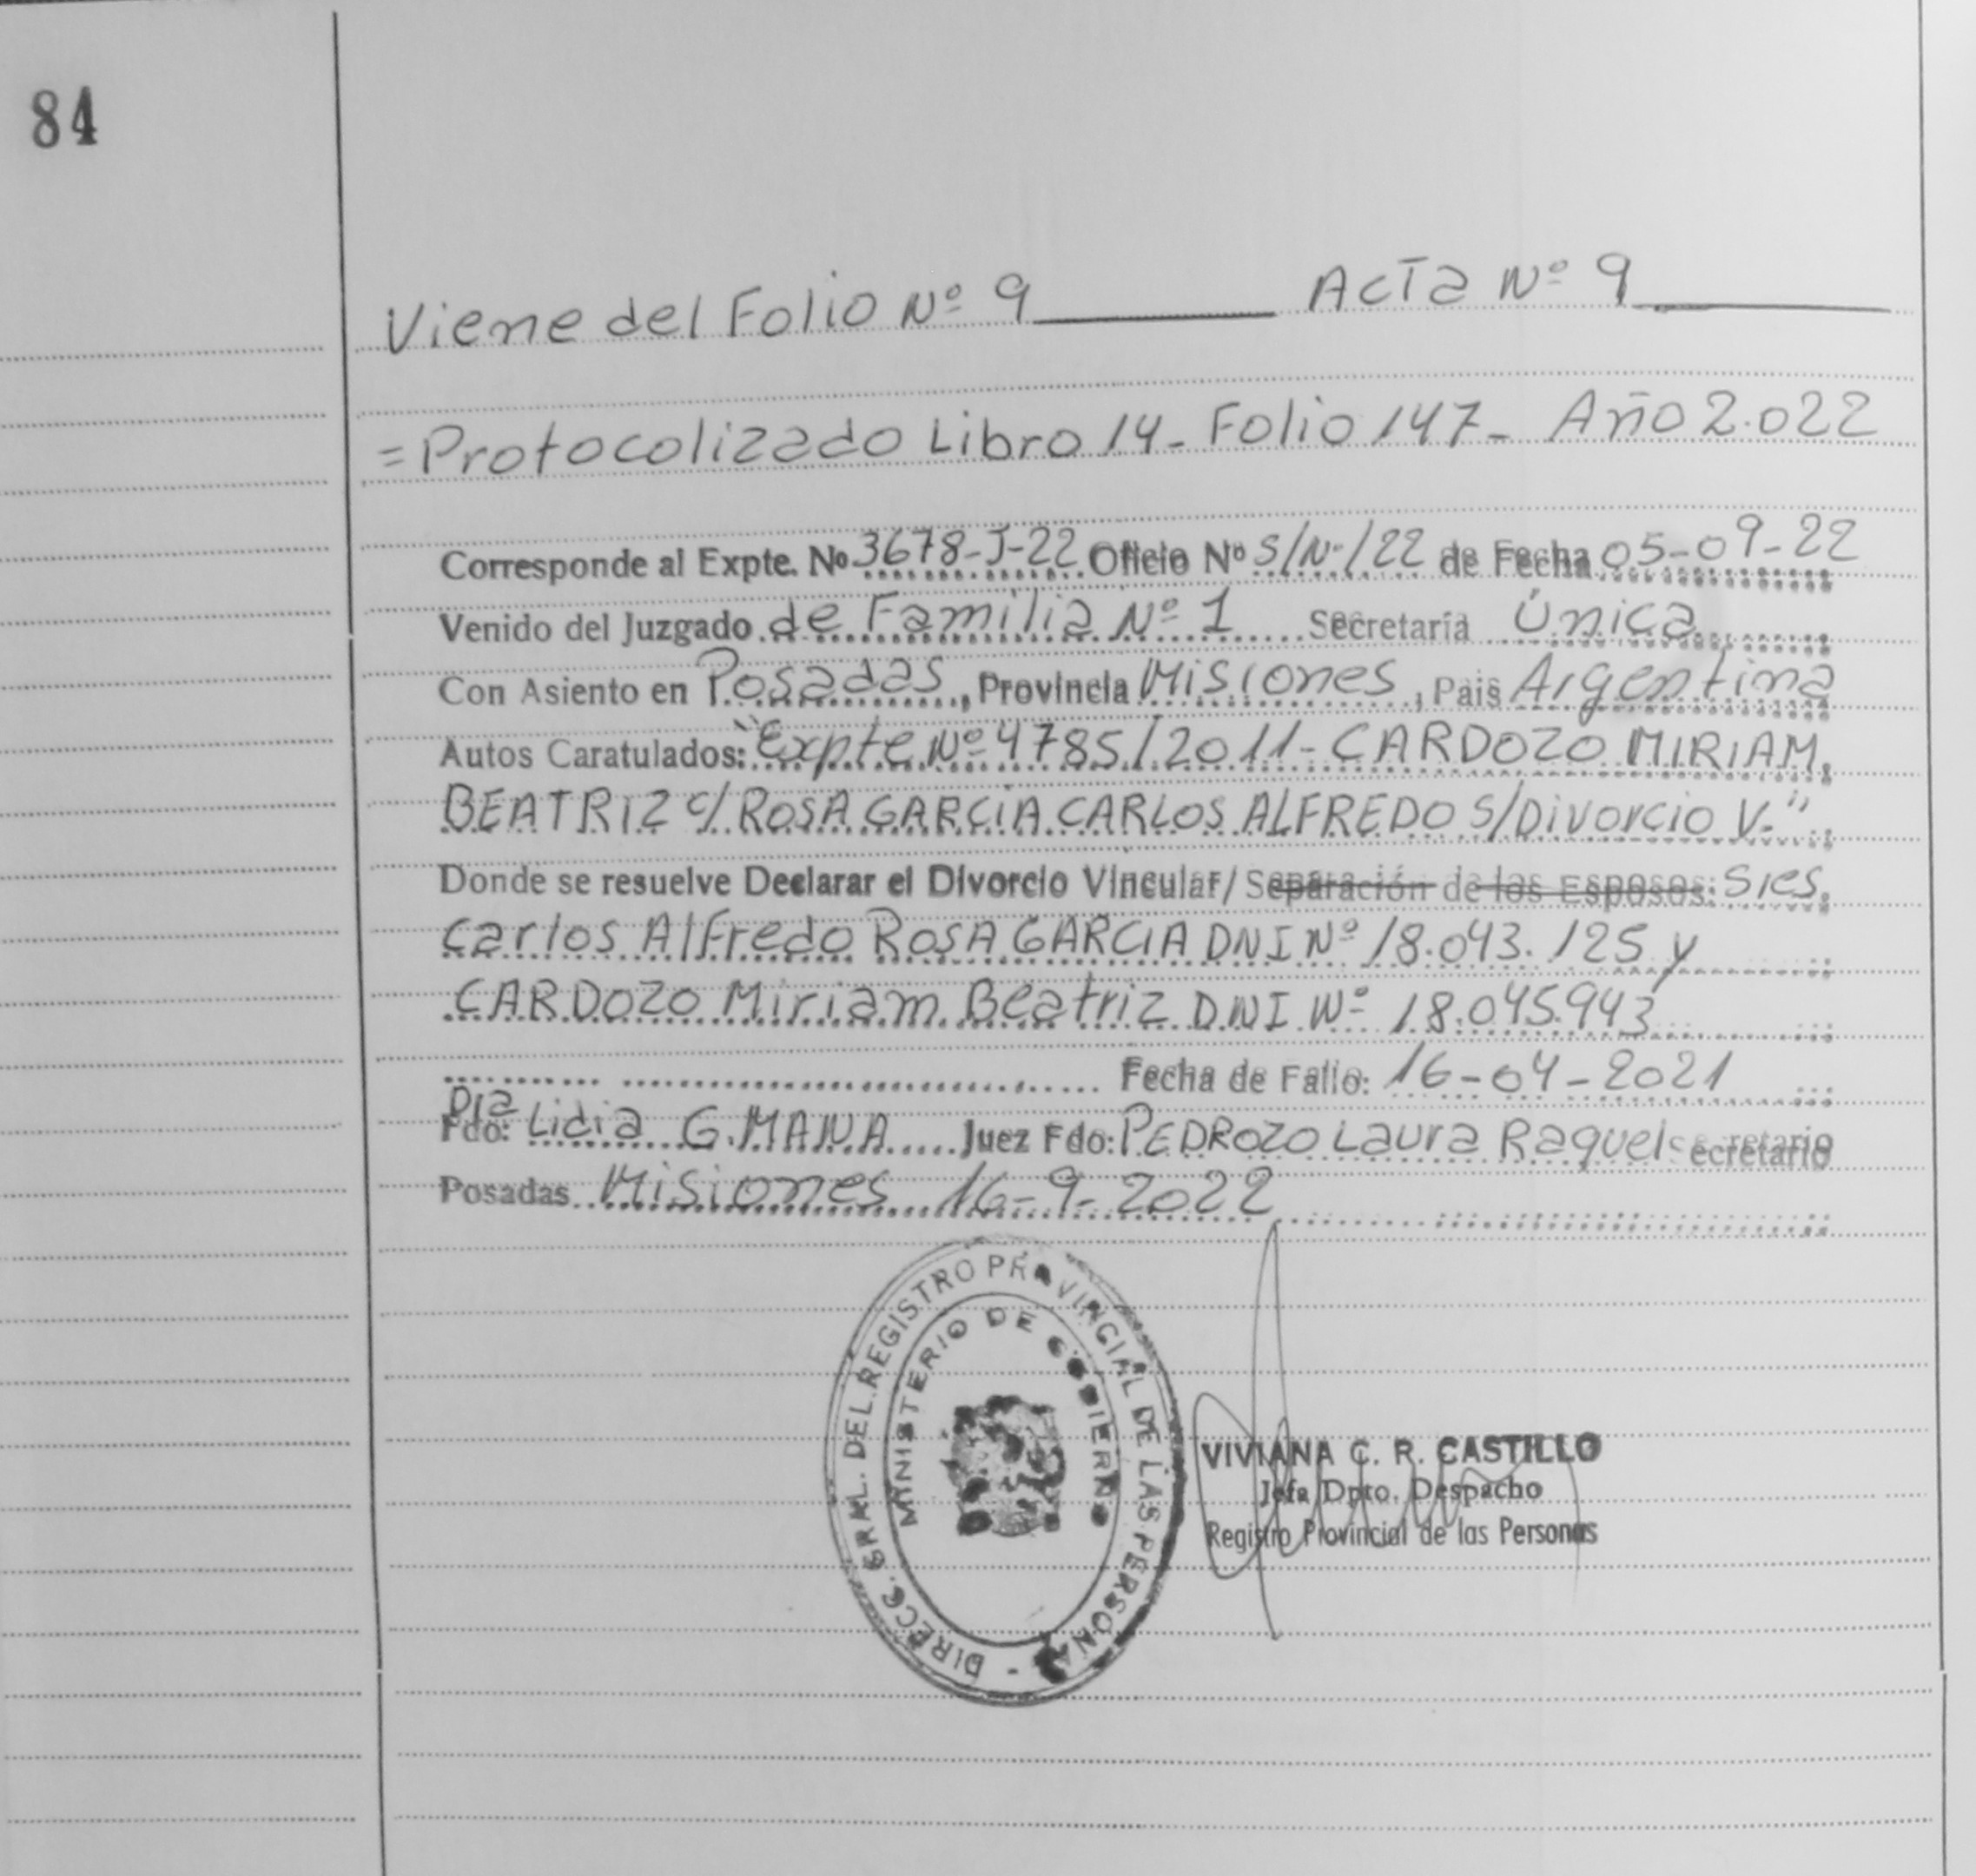 84
Viene del Folio Nº 9 Acta Nº 9
=Protocolizado Libro 14- Folio 147- Año 2.022
Corresponde al Expte. Nº 3678-J-22 Oficio Nº S/N·/22 de Fecha 05-09-22
Venido del Juzgado de Familia Nº 1 Secretaría Única
Con Asiento en Posadas, Provincia Misiones, Pais Argentina
Autos Caratulados: "Expte Nº 4785/2011- CARDOZO MIRIAM
BEATRIZ c/ ROSA GARCÍA CARLOS ALFREDO S/Divorcio V."
Donde se resuelve Declarar el Divorcio Vincular/ Separación de los Esposos: Sres.
Carlos Alfredo ROSA GARCIA DNI Nº 18.043.125 y
CARDOZO Miriam Beatriz DNI Nº 18.045.943
Fecha de Fallo: 16-04-2021
Dra
Fdo: Lidia G. MANA Juez Fdo: PEDROZO Laura Raquel Secretario
Posadas Misiones 16-9-2022
DIRECC. GRAL. DEL REGISTRO PROVINCIAL DE LAS PERSONAS -
MINISTERIO DE GOBIERNO
VIVIANA C. R. CASTILLO
Jefa Dpto. Despacho
Registro Provincial de las Personas